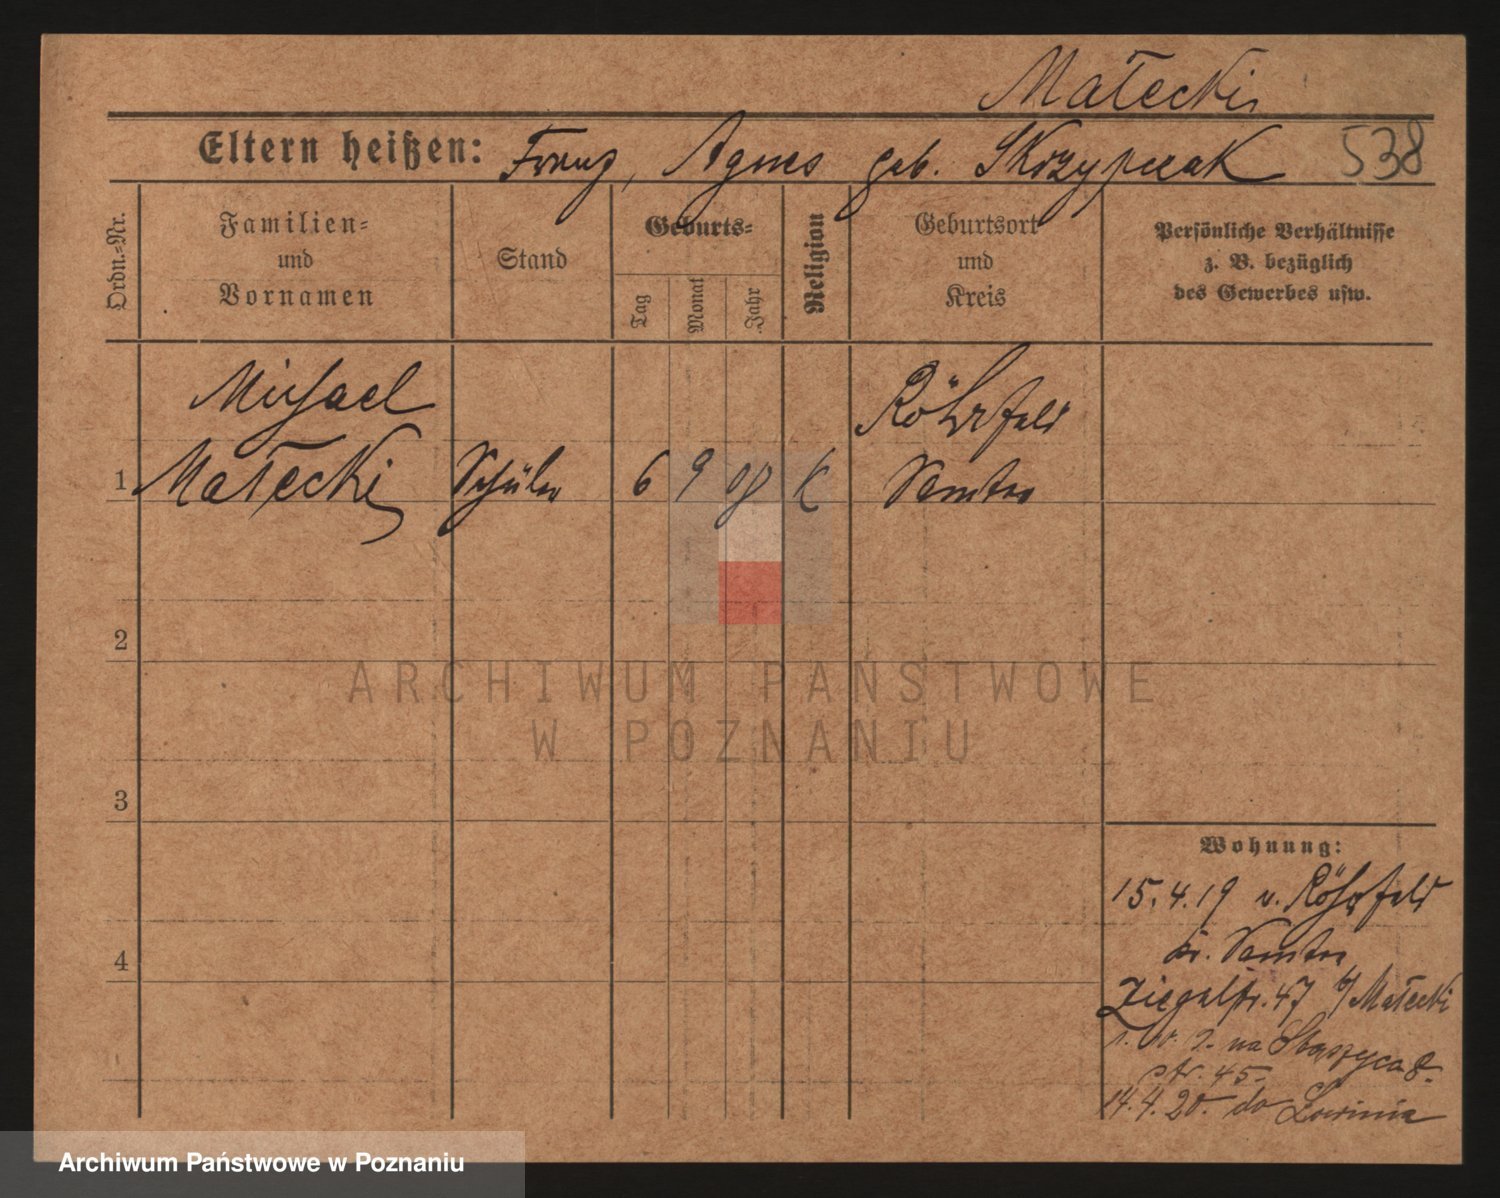 Małecki
Eltern heißen: Franz, Agnes geb. Skrzypczak
538
Ordn.=Nr.
Familien=
und
Vornamen
Stand
Geburts=
Tag
Monat
Jahr
Religion
Geburtsort
und
Kreis
Persönliche Verhältnisse
z. B. bezüglich
des Gewerbes usw.
Michael Röhrfeld
1 Małecki Schüler 6 9 08 K Samter
2
3
4
Wohnung:
15.4.19 v. Röhrfeld
Kr. Samter
Ziegelstr. 47 b/ Małecki
na
str. 45.
14.4.20. do
ARCHIWUM PAŃSTWOWE
W POZNANIU
Archiwum Państwowe w Poznaniu